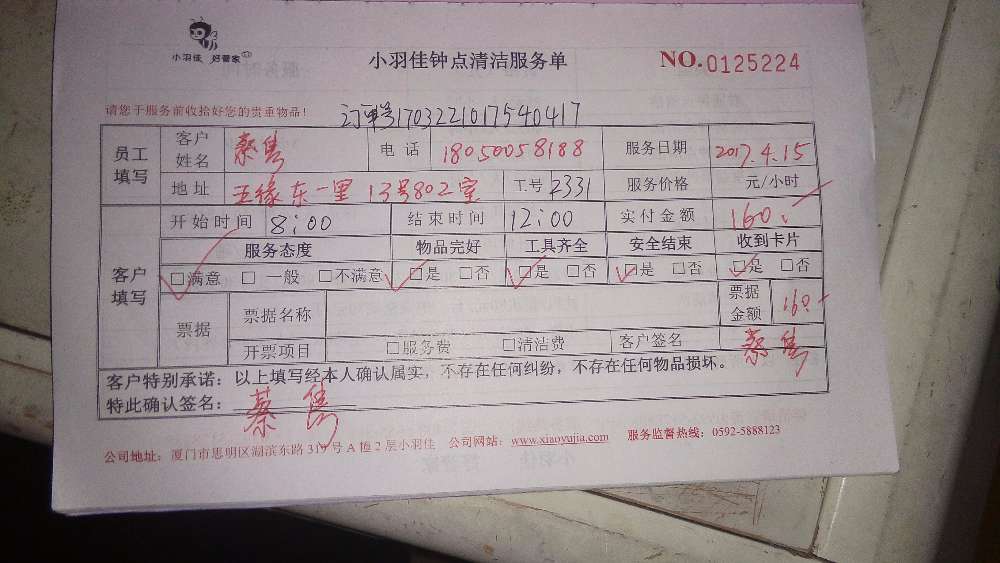 小羽佳 好管家
小羽佳钟点清洁服务单
NO.0125224
请您于服务前收拾好您的贵重物品！
订单号1703221017540417
员工填写 客户姓名 蔡隽 电话 18050058188 服务日期 2017.4.15
地址 五缘东一里13号802室 工号 2331 服务价格 元/小时
客户填写 开始时间 8:00 结束时间 12:00 实付金额 160.
服务态度 物品完好 工具齐全 安全结束 收到卡片
□满意 □一般 □不满意 □是 □否 □是 □否 □是 □否 □是 □否
票据 票据名称 票据金额 160
开票项目 □服务费 □清洁费 客户签名 蔡隽
客户特别承诺：以上填写经本人确认属实，不存在任何纠纷，不存在任何物品损坏。
特此确认签名：蔡隽
公司地址：厦门市思明区湖滨东路319号A幢2层小羽佳 公司网站：www.xiaoyujia.com 服务监督热线：0592-5888123